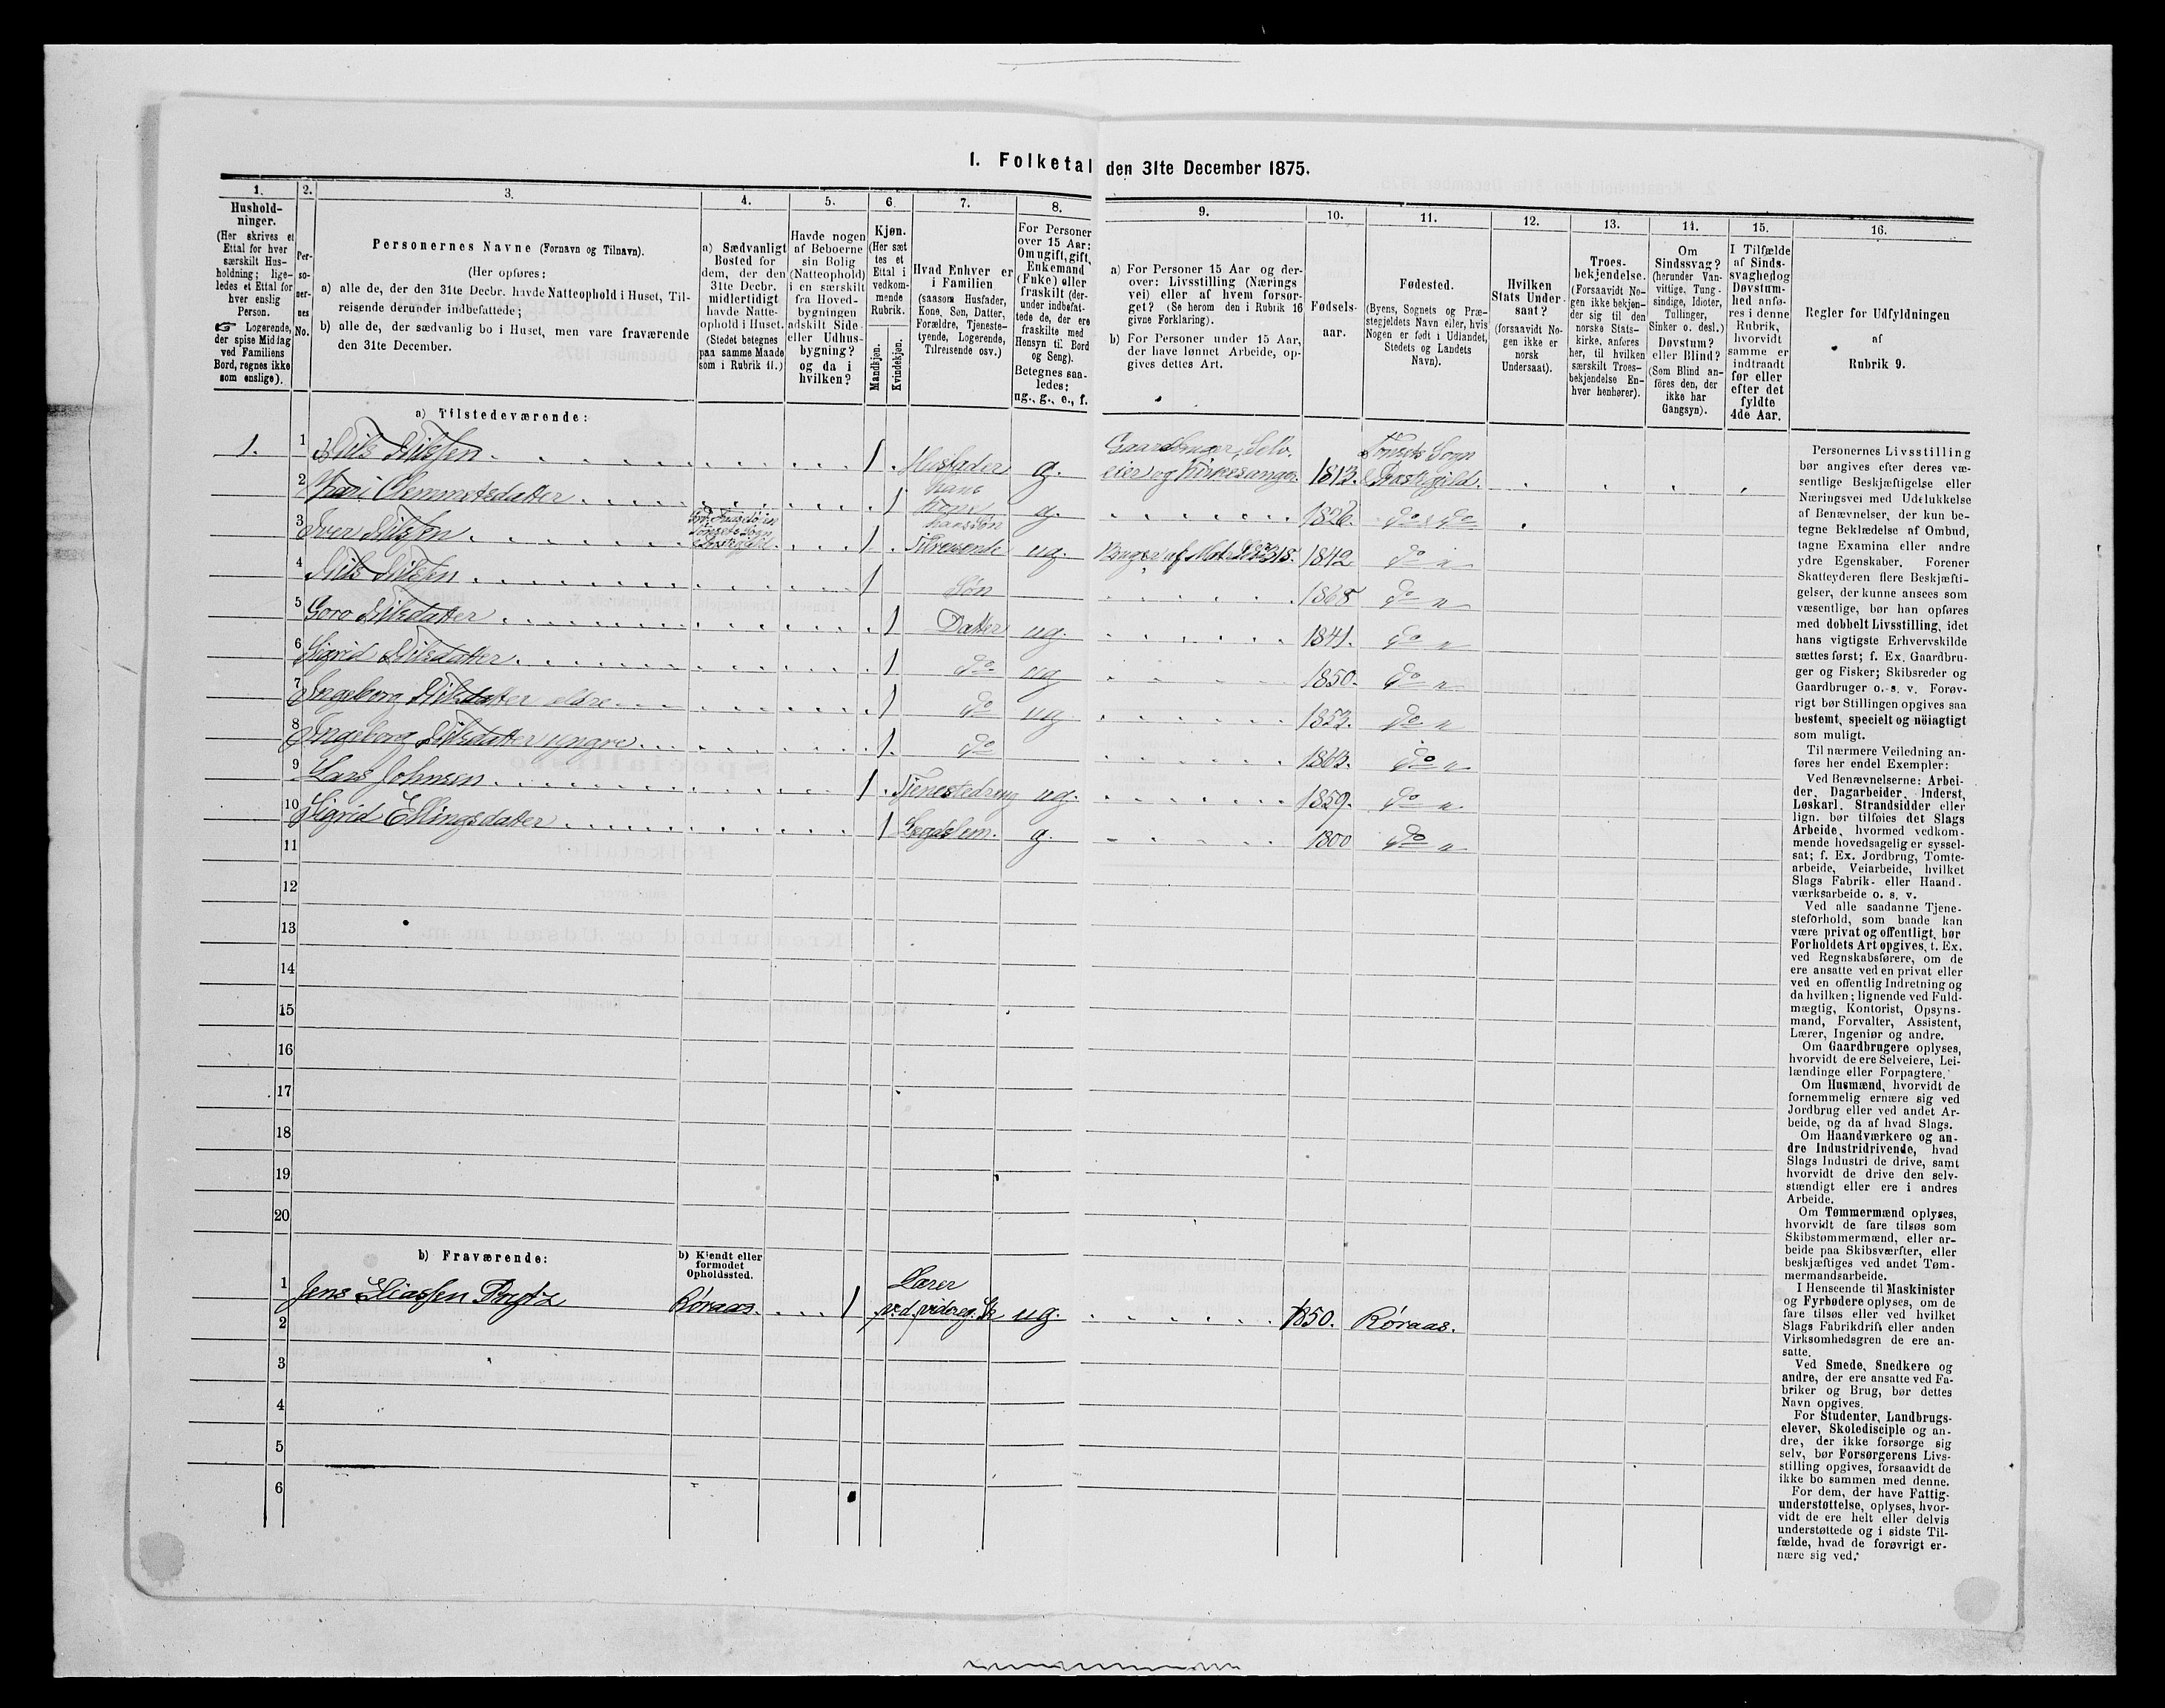 1. Folketal den 31te December 1875.
1.
Hushold-
ninger.
(Her skrives et
Ettal for hver
særskilt Hus-
holdning; lige-
ledes et Ettal for
hver enslig
Person.
☞ Logerende,
der spise Middag
ved Familiens
Bord, regnes ikke
som enslige).
2.
Per-
so-
ner-
nes
No.
3.
Personernes Navne (Fornavn og Tilnavn).
(Her opføres:
a) alle de, der den 31te Decbr. havde Natteophold i Huset, Til-
reisende derunder indbefattede;
b) alle de, der sædvanlig bo i Huset, men vare fraværende
den 31te December.
4.
a) Sædvanligt
Bosted for
dem, der den
31te Decbr.
midlertidigt
havde Natte-
ophold i Huset.
(Stedet betegnes
paa samme Maade
som i Rubrik 11.)
5.
Havde nogen
af Beboerne
sin Bolig
(Natteophold)
i en særskilt
fra Hoved-
bygningen
adskilt Side-
eller Udhus-
bygning?
og da i
hvilken?
6.
Kjøn.
(Her sæt
tes et
Ettal i
vedkom-
mende
Rubrik.
Mandkjøn.
Kvindekjøn.
7.
Hvad Enhver er
i Familien
(saasom Husfader,
Kone, Søn, Datter,
Forældre, Tjeneste-
tyende, Logerende,
Tilreisende osv.)
8.
For Personer
over 15 Aar:
Om ugift, gift,
Enkemand
(Enke) eller
fraskilt (der-
under indbefat-
tede de, der ere
fraskilte med
Hensyn til Bord
og Seng).
Betegnes saa-
ledes:
ug., g., e., f.
9.
a) For Personer 15 Aar og der-
over: Livsstilling (Nærings
vei) eller af hvem forsør-
get? (Se herom den i Rubrik 16
givne Forklaring).
b) For Personer under 15 Aar,
der have lønnet Arbeide, op-
gives dettes Art.
10.
Fødsels-
aar.
11.
Fødested.
(Byens, Sognets og Præ-
stegjeldets Navn eller, hvis
Nogen er født i Udlandet,
Stedets og Landets
Navn).
12.
Hvilken
Stats Under-
saat?
(forsaavidt No-
gen ikke er
norsk
Undersaat).
13.
Troes-
bekjendelse.
(Forsaavidt No-
gen ikke bekjen-
der sig til den
norske Stats-
kirke, anføres
her, til hvilken
særskilt Troes-
bekjendelse En-
hver henhører).
14.
Om
Sindssvag?
(herunder Van-
vittige, Tung-
sindige, Idioter,
Tullinger,
Sinker o. desl.)
Døvstum?
eller Blind?
(Som Blind an-
föres den, der
ikke har
Gangsyn).
15.
I Tilfælde
af Sinds-
svaghed og
Døvstum-
hed anfø-
res i denne
Rubrik,
hvorvidt
samme er
indtraadt
før eller
efter det
fyldte
4de Aar.
16.
Regler for Udfyldningen
af
Rubrik 9.
a) Tilstedeværende:
1. 1 Nils Nilsen 1 Husfader g. Gaardbruger, Selv-
eier og Kirkesanger. 1813. Tonsets Sogn
Præstegield.
2 Kari Clemmetsdatter 1 hans
Kone g. 1826. do & do
3 Iver Nilsen Tonsets Sogn
Præstegield. 1 hans Søn
Tilreisende ug. 1842. do "
4 Nils Nilsen 1 Søn 1868 do "
5 Goro Nilsdatter 1 Datter ug. 1841. do "
6 Sigrid Nilsdatter 1 do ug 1850. do "
7 Ingeborg Nilsdatter eldre 1 do ug 1853. do "
8 Ingeborg Nilsdatter yngre 1. do 1863. do "
9 Lars Johnsen 1 Tjenestedreng ug. 1859. do "
10 Sigrid Ellingsdatter 1 Lægdslem. g. 1800 do "
11
12
13
14
15
16
17
18
19
20
b) Fraværende:
b) Kjendt eller
formodet
Opholdssted.
1 Jens Eliassen Røraas. 1 Lærer
ved videreg. Sk ug. 1850. Røraas.
2
3
4
5
6
Personernes Livsstilling
bør angives efter deres væ-
sentlige Beskjæftigelse eller
Næringsvei med Udelukkelse
af Benævnelser, der kun be-
tegne Beklædelse af Ombud,
tagne Examina eller andre
ydre Egenskaber. Forener
Skatteyderen flere Beskjæfti-
gelser, der kunne ansees som
væsentlige, bør han opføres
med dobbelt Livsstilling, idet
hans vigtigste Erhvervskilde
sættes først; f. Ex. Gaardbru-
ger og Fisker; Skibsreder og
Gaardbruger o. s. v. Forøv-
rigt bør Stillingen opgives saa
bestemt, specielt og nöiagtigt
som muligt.
Til nærmere Veiledning an-
føres her endel Exempler:
Ved Benævnelserne: Arbei-
der, Dagarbeider, Inderst,
Løskarl, Strandsidder eller
lign. bør tilføies det Slags
Arbeide, hvormed vedkom-
mende hovedsagelig er syssel-
sat; f. Ex. Jordbrug, Tomte-
arbeide, Veiarbeide, hvilket
Slags Fabrik- eller Haand-
værksarbeide o. s. v.
Ved alle saadanne Tjene-
steforhold, som baade kan
være privat og offentligt, bør
Forholdets Art opgives, t. Ex.
ved Regnskabsførere, om de
ere ansatte ved en privat eller
ved en offentlig Indretning og
da hvilken; lignende ved Fuld-
mægtig, Kontorist, Opsyns-
mand, Forvalter, Assistent,
Lærer, Ingeniør og andre.
Om Gaardbrugere oplyses,
hvorvidt de ere Selveiere, Lei-
lændinge eller Forpagtere.
Om Husmænd, hvorvidt de
fornemmelig ernære sig ved
Jordbrug eller ved andet Ar-
beide, og da af hvad Slags.
Om Haandværkere og an-
dre Industridrivende, hvad
Slags Industri de drive, samt
hvorvidt de drive den selv-
stændigt eller ere i andres
Arbeide.
Om Tømmermænd oplyses,
hvorvidt de fare tilsøs som
Skibstømmermænd, eller ar-
beide paa Skibsværfter, eller
beskjæftiges ved andet Tøm-
mermandsarbeide.
I Henseende til Maskinister
og Fyrbødere oplyses, om de
fare tilsøs eller ved hvilket
Slags Fabrikdrift eller anden
Virksomhedsgren de ere an-
satte.
Ved Smede, Snedkere og
andre, der ere ansatte ved Fa-
briker og Brug, bør dettes
Navn opgives.
For Studenter, Landbrugs-
elever, Skoledisciple og an-
dre, der ikke forsørge sig
selv, bør Forsørgerens Livs-
stilling opgives, forsaavidt de
ikke bo sammen med denne.
For dem, der have Fattig-
understøttelse, oplyses, hvor-
vidt de ere helt eller delvis
understøttede og i sidste Til-
fælde, hvad de forøvrigt er-
nære sig ved.